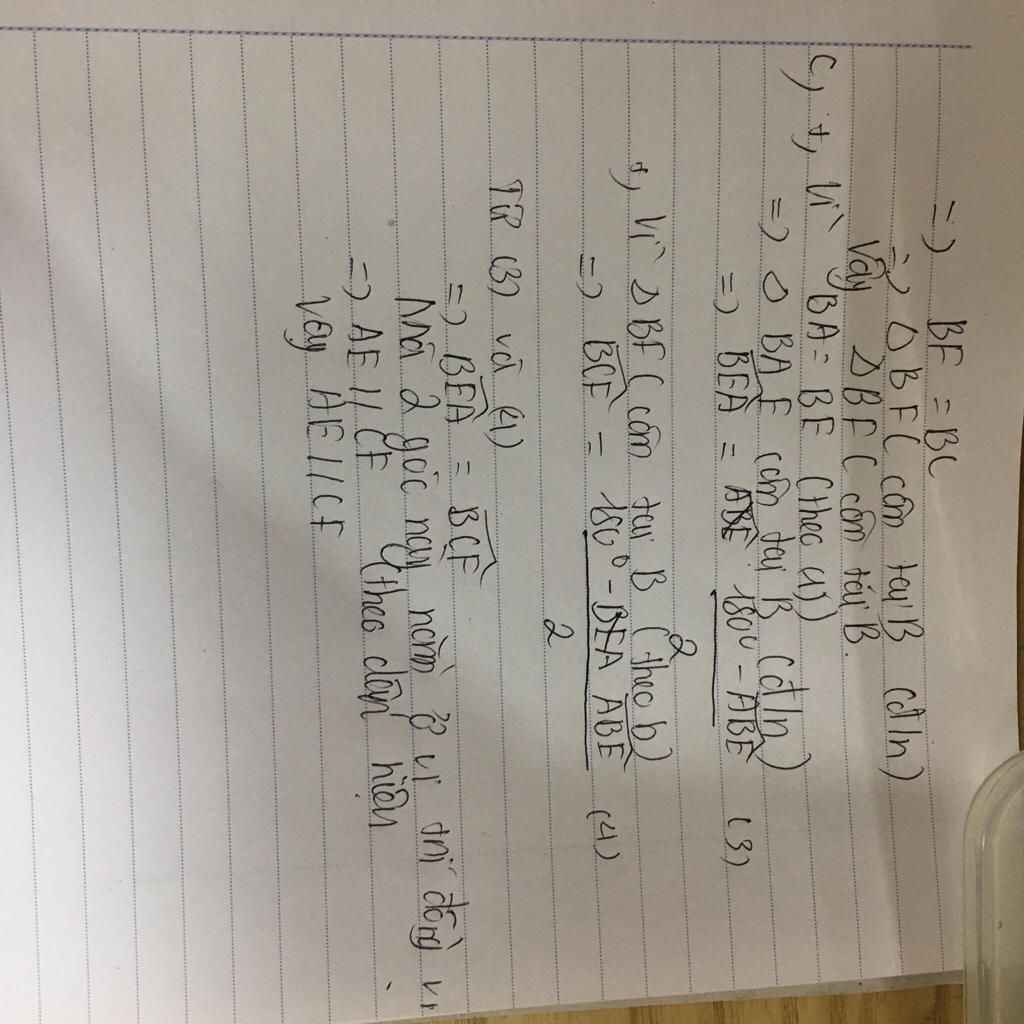 =) BF = BC
=) △BFC cân tại B (đ/n)
Vậy △BFC cân tại B.
c, +, Vì BA = BE (theo a)
=) △ BAE cân tại B (đ/n)
=) BEA = ABE 180° - ABE (3)
2
+, Vì △BFC cân tại B (theo b)
=) BCF = 180° - BEA ABE (4)
2
Từ (3) và (4)
=) BEA = BCF
Mà 2 góc này nằm ở vị trí đồng vị
=) AE // CF (theo dấu hiệu
Vậy AE // CF